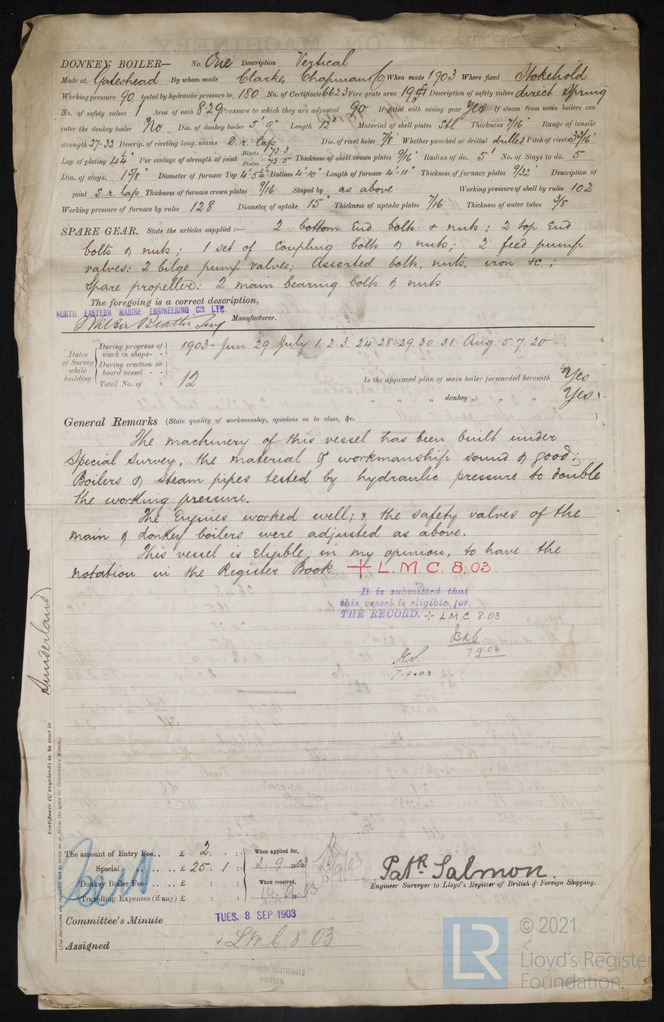 DONKEY BOILER— No. One Description Vertical
Made at Gateshead By whom made Clarke, Chapman & Co When made 1903 Where fixed Stokehold
Working pressure 90 tested by hydraulic pressure to 180 No. of Certificate 6623 Fire grate area 19 Description of safety valves direct spring
No. of safety valves 1 Area of each 8.29 Pressure to which they are adjusted 90 If fitted with easing gear Yes If steam from main boilers can
enter the donkey boiler No Dia. of donkey boiler 5'9" Length 12' Material of shell plates Stl Thickness 7/16" Range of tensile
strength 27-33 Descrip. of riveting long. seams D.r. lap Dia. of rivet holes 7/8 Whether punched or drilled drilled Pitch of rivets
Lap of plating 4¼" Per centage of strength of joint Rivets 73.3 Plates 73.5 Thickness of shell crown plates 9/16" Radius of do. 5' No. of Stays to do. 5
Dia. of stays. 1⅝" Diameter of furnace Top 4'5½" Bottom 4'10" Length of furnace 4'11" Thickness of furnace plates 9/32" Description of
joint S.r. lap Thickness of furnace crown plates 9/16 Stayed by as above Working pressure of shell by rules 102
Working pressure of furnace by rules 128 Diameter of uptake 15" Thickness of uptake plates 7/16 Thickness of water tubes 3/8
SPARE GEAR. State the articles supplied:— 2 bottom end bolts & nuts; 2 top end
bolts & nuts; 1 set of coupling bolts & nuts; 2 feed pump
valves: 2 bilge pump valves; Assorted bolts, nuts, iron &c.;
Spare propeller: 2 main bearing bolts & nuts
The foregoing is a correct description,
NORTH EASTERN MARINE ENGINEERING CO LTD
Manufacturer.
Dates of Survey while building
During progress of work in shops-- 1903 - Jun. 29. July 1. 2. 3. 24. 28. 29. 30. 31. Aug. 5. 7. 20
During erection on board vessel---
Total No. of 12 Is the approved plan of main boiler forwarded herewith Yes
" " " donkey " " Yes
General Remarks (State quality of workmanship, opinions as to class, &c.
The machinery of this vessel has been built under
Special Survey, the material & workmanship sound & good;
Boilers & Steam pipes tested by hydraulic pressure to double
the working pressure.
The Engines worked well; & the safety valves of the
main & donkey boilers were adjusted as above.
This vessel is eligible, in my opinion, to have the
notation in the Register Book + L.M.C. 8.03.
It is submitted that
this vessel is eligible for
THE RECORD. + LMC 8.03
7.9.03
7.9.03
Sunderland
Certificate (if required) to be sent to
The amount of Entry Fee.. £ 2 : : When applied for,
Special .. £ 25 . 1 : 3.9.03
Donkey Boiler Fee .. £ : : When received,
Travelling Expenses (if any) £ : :
Patk Salmon.
Engineer Surveyor to Lloyd's Register of British & Foreign Shipping.
Committee's Minute TUES. 8 SEP 1903
Assigned + LMC 8.03
© 2021
LR
Lloyd's Register
Foundation